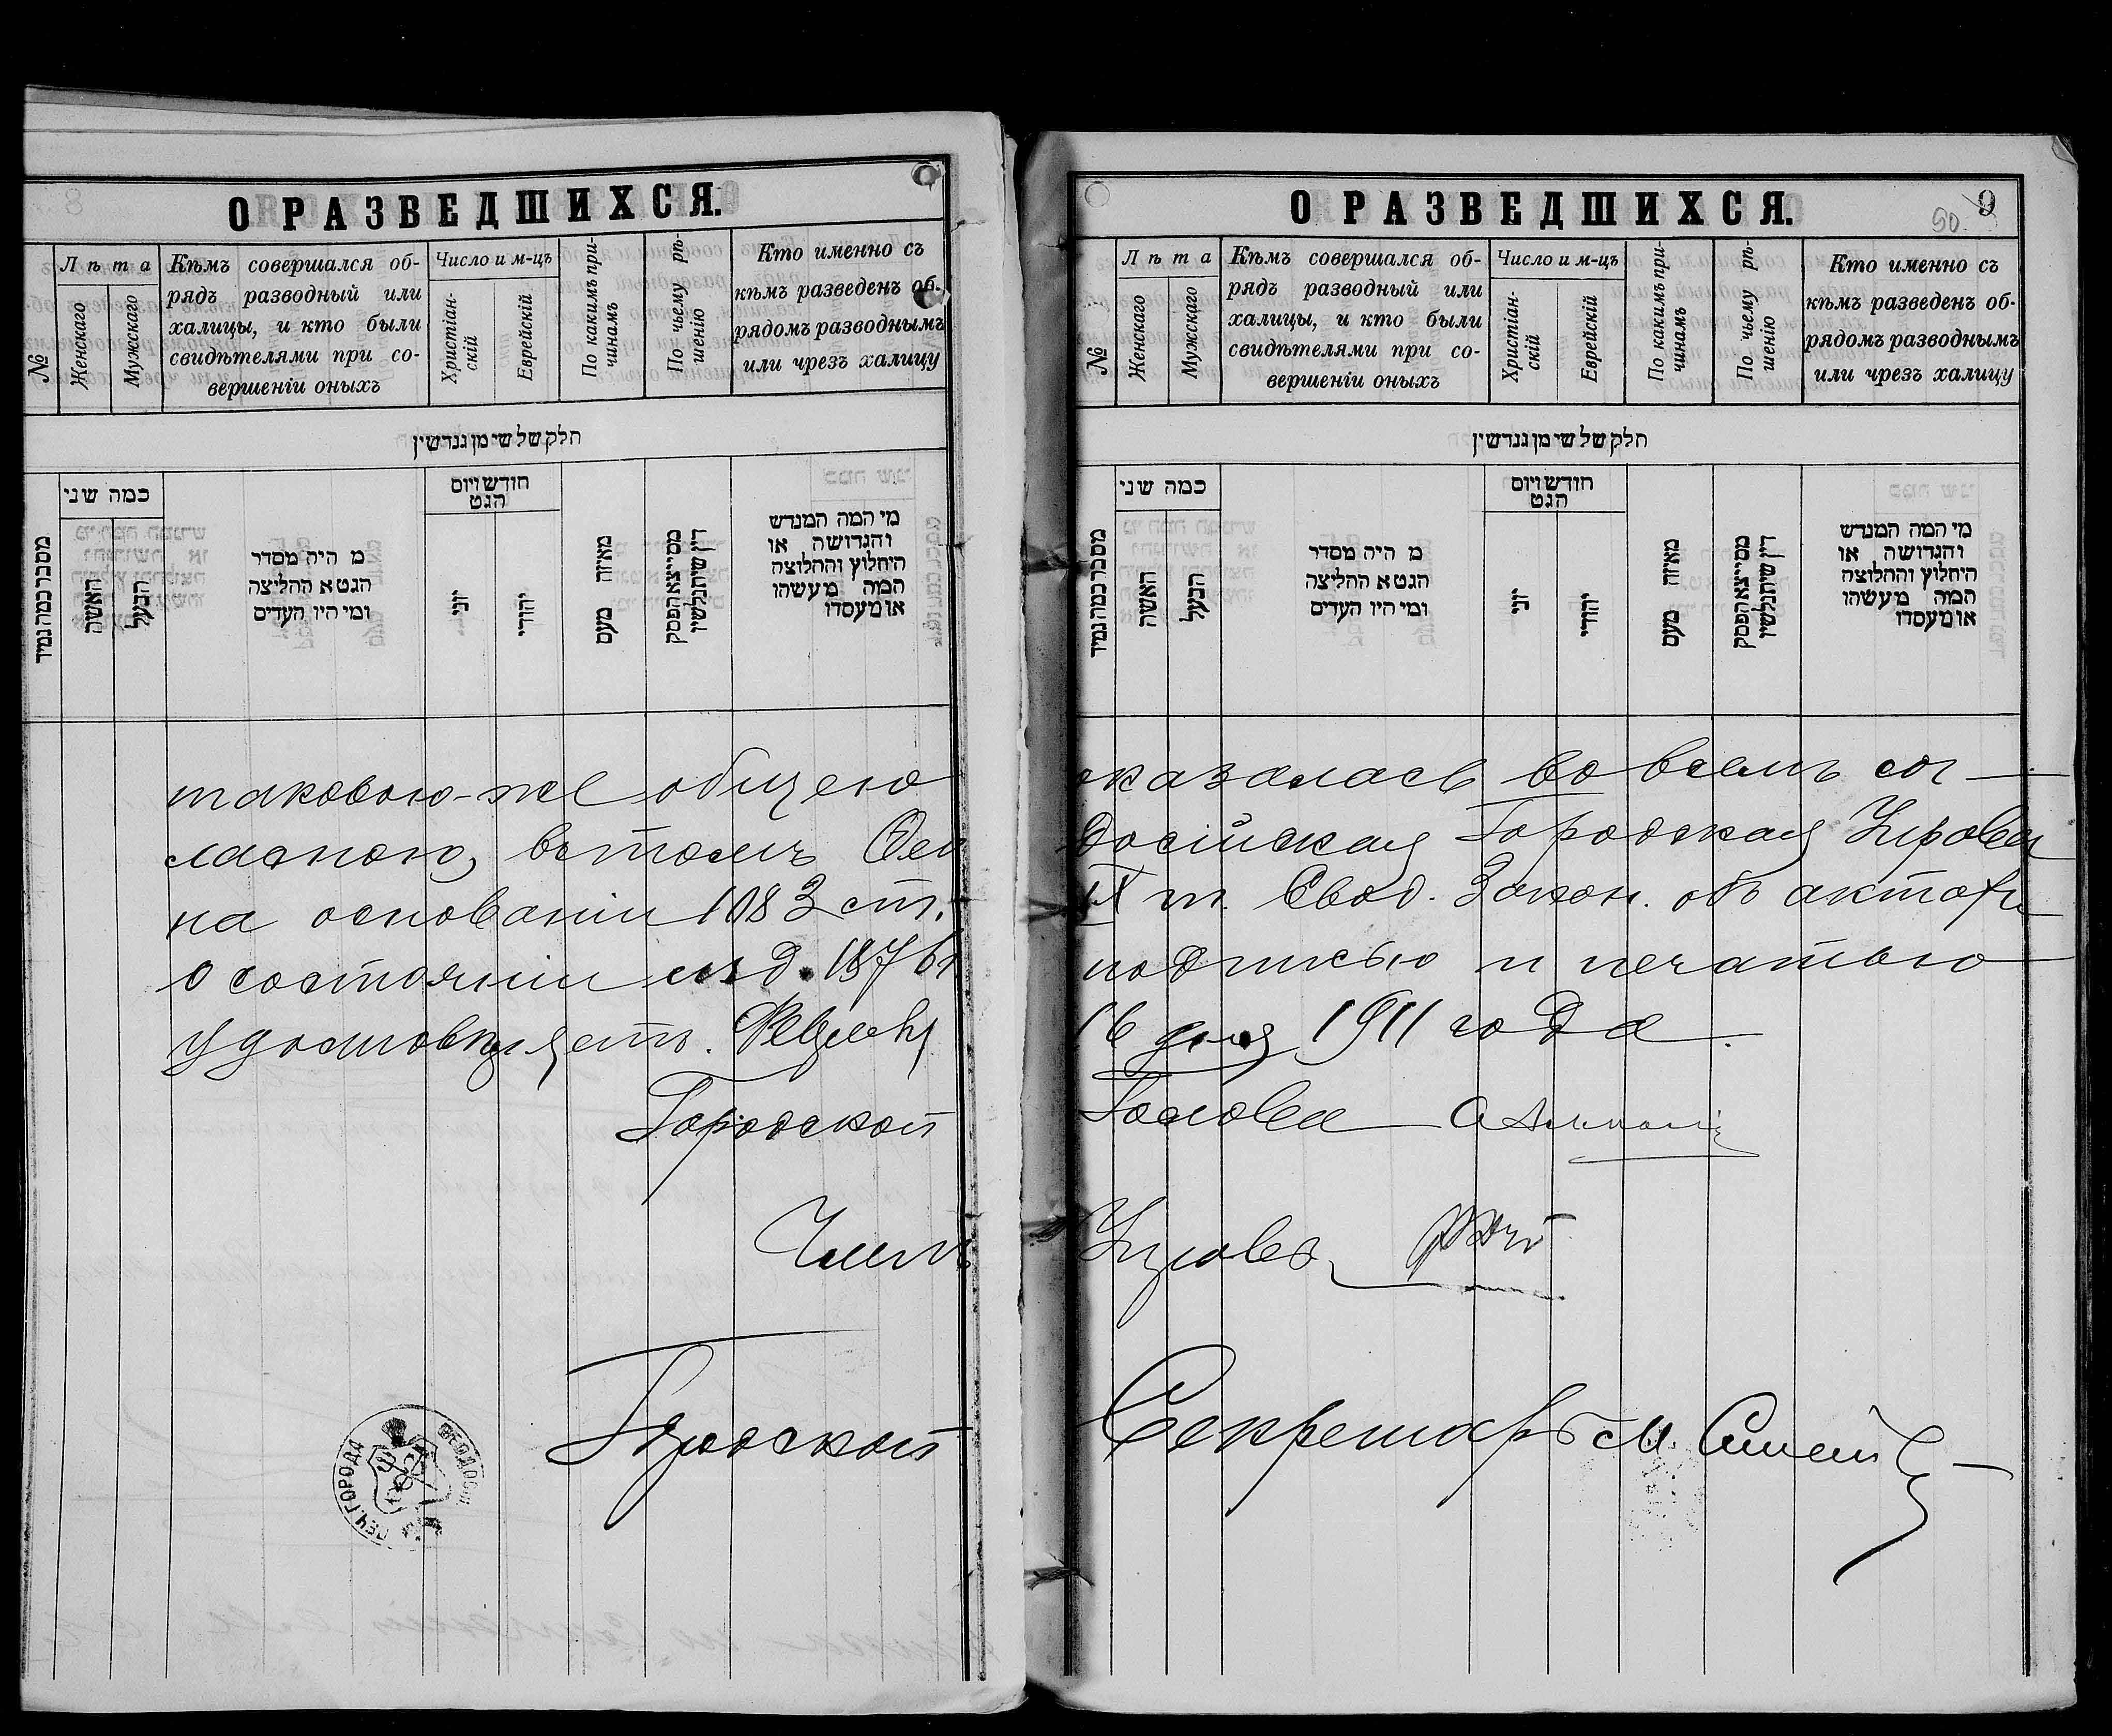 О РАЗВЕДШИХСЯ.
№
Лѣта
Женскаго
Мужскаго
Кѣмъ совершался об-
рядъ разводный или
халицы, и кто были
свидѣтелями при со-
вершеніи оныхъ
Число и м-цъ
Христіан-
скій
Еврейскій
По какимъ при-
чинамъ
По чьему рѣ-
шенію
Кто именно съ
кѣмъ разведенъ об-
рядомъ разводнымъ
или чрезъ халицу
חלק שלשי מן גנדשין
כמה שני
האשה
הבעל
מ היה מסדר
הגט א ההליצה
ומי היו העדים
חודש ויום
הגט
יוני
יהודי
מאיזה טעם
מי המה המנדש
והגדושה או
היחלוץ והחלוצה
המה מעשהו
או מעסדו
таковою-же общею
сласною, въ томъ Ѳео
на основаніи 1083 ст.
о состояніи изд. 1876
удостовѣряетъ.
Городской
Членъ
Городской
ПЕЧ. ГОРОДА ѲЕОДОСІИ
О РАЗВЕДШИХСЯ.
9
50
№
Лѣта
Женскаго
Мужскаго
Кѣмъ совершался об-
рядъ разводный или
халицы, и кто были
свидѣтелями при со-
вершеніи оныхъ
Число и м-цъ
Христіан-
скій
Еврейскій
По какимъ при-
чинамъ
По чьему рѣ-
шенію
Кто именно съ
кѣмъ разведенъ об-
рядомъ разводнымъ
или чрезъ халицу
חלק שלשי מן גנדשין
כמה שני
האשה
הבעל
מ היה מסדר
הגט א ההליצה
ומי היו העדים
חודש ויום
הגט
יוני
יהודי
מאיזה טעם
מי המה המנדש
והגדושה או
היחלוץ והחלוצה
המה מעשהו
או מעסדו
оказалась во всемъ сог
досійская Городская Управа
IX т. Свод. Закон. объ актахъ
подписью и печатью
16 дня 1911 года.
Голова
Управы
Секретарь М.